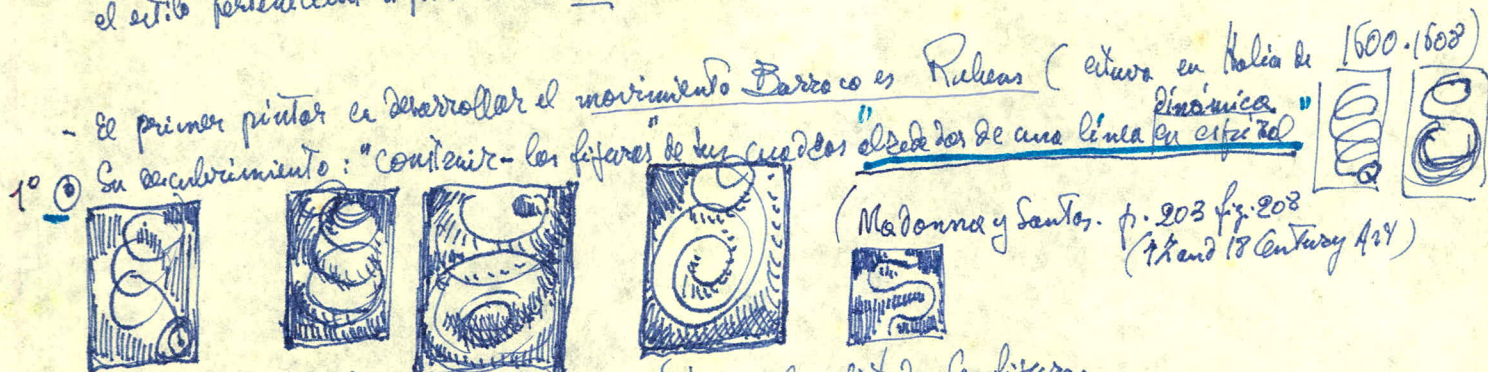 el estilo
- El primer pintor en desarrollar el movimiento Barroco es Rubens ( estuvo en Italia de 1600.1608)
1º Su descubrimiento: "construir - las figuras" de sus cuadros "alrededor de una línea dinámica en espiral"
(Madonna y Santos. p. 203 fig. 208
(17 and 18 Century Art)
las figuras